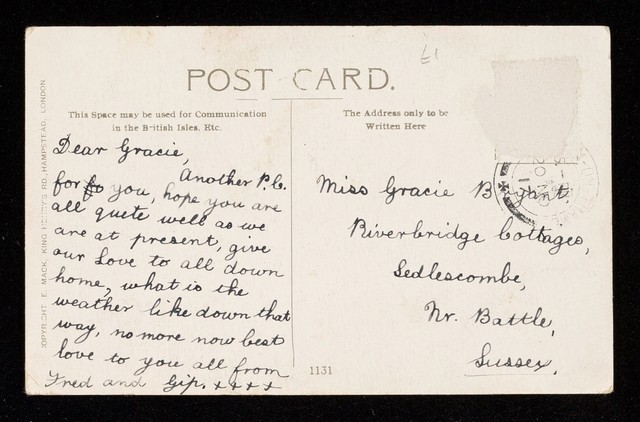 £1
POST CARD.
This Space may be used for Communication
in the British Isles, Etc.
The Address only to be
Written Here
COPYRIGHT. E. MACK, KING HENRY'S RD., HAMPSTEAD, LONDON
Dear Gracie,
Another P.C.
for you, hope you are
all quite well as we
are at present, give
our Love to all down
home, what is the
weather like down that
way, no more now best
love to you all from
Fred and Gip. x x x x
Miss Gracie
Riverbridge Cottages,
Sedlescombe,
Nr. Battle,
Sussex.
1131